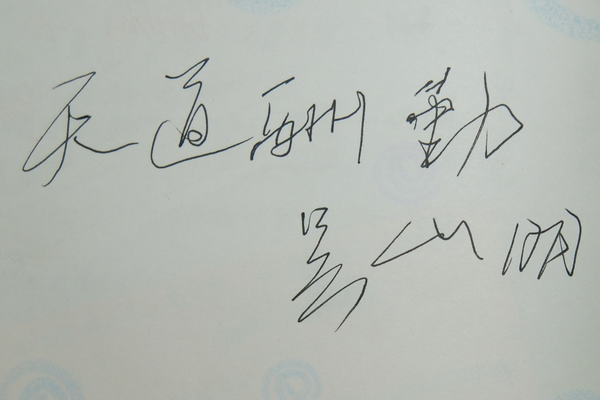 天道酬勤
吴山明